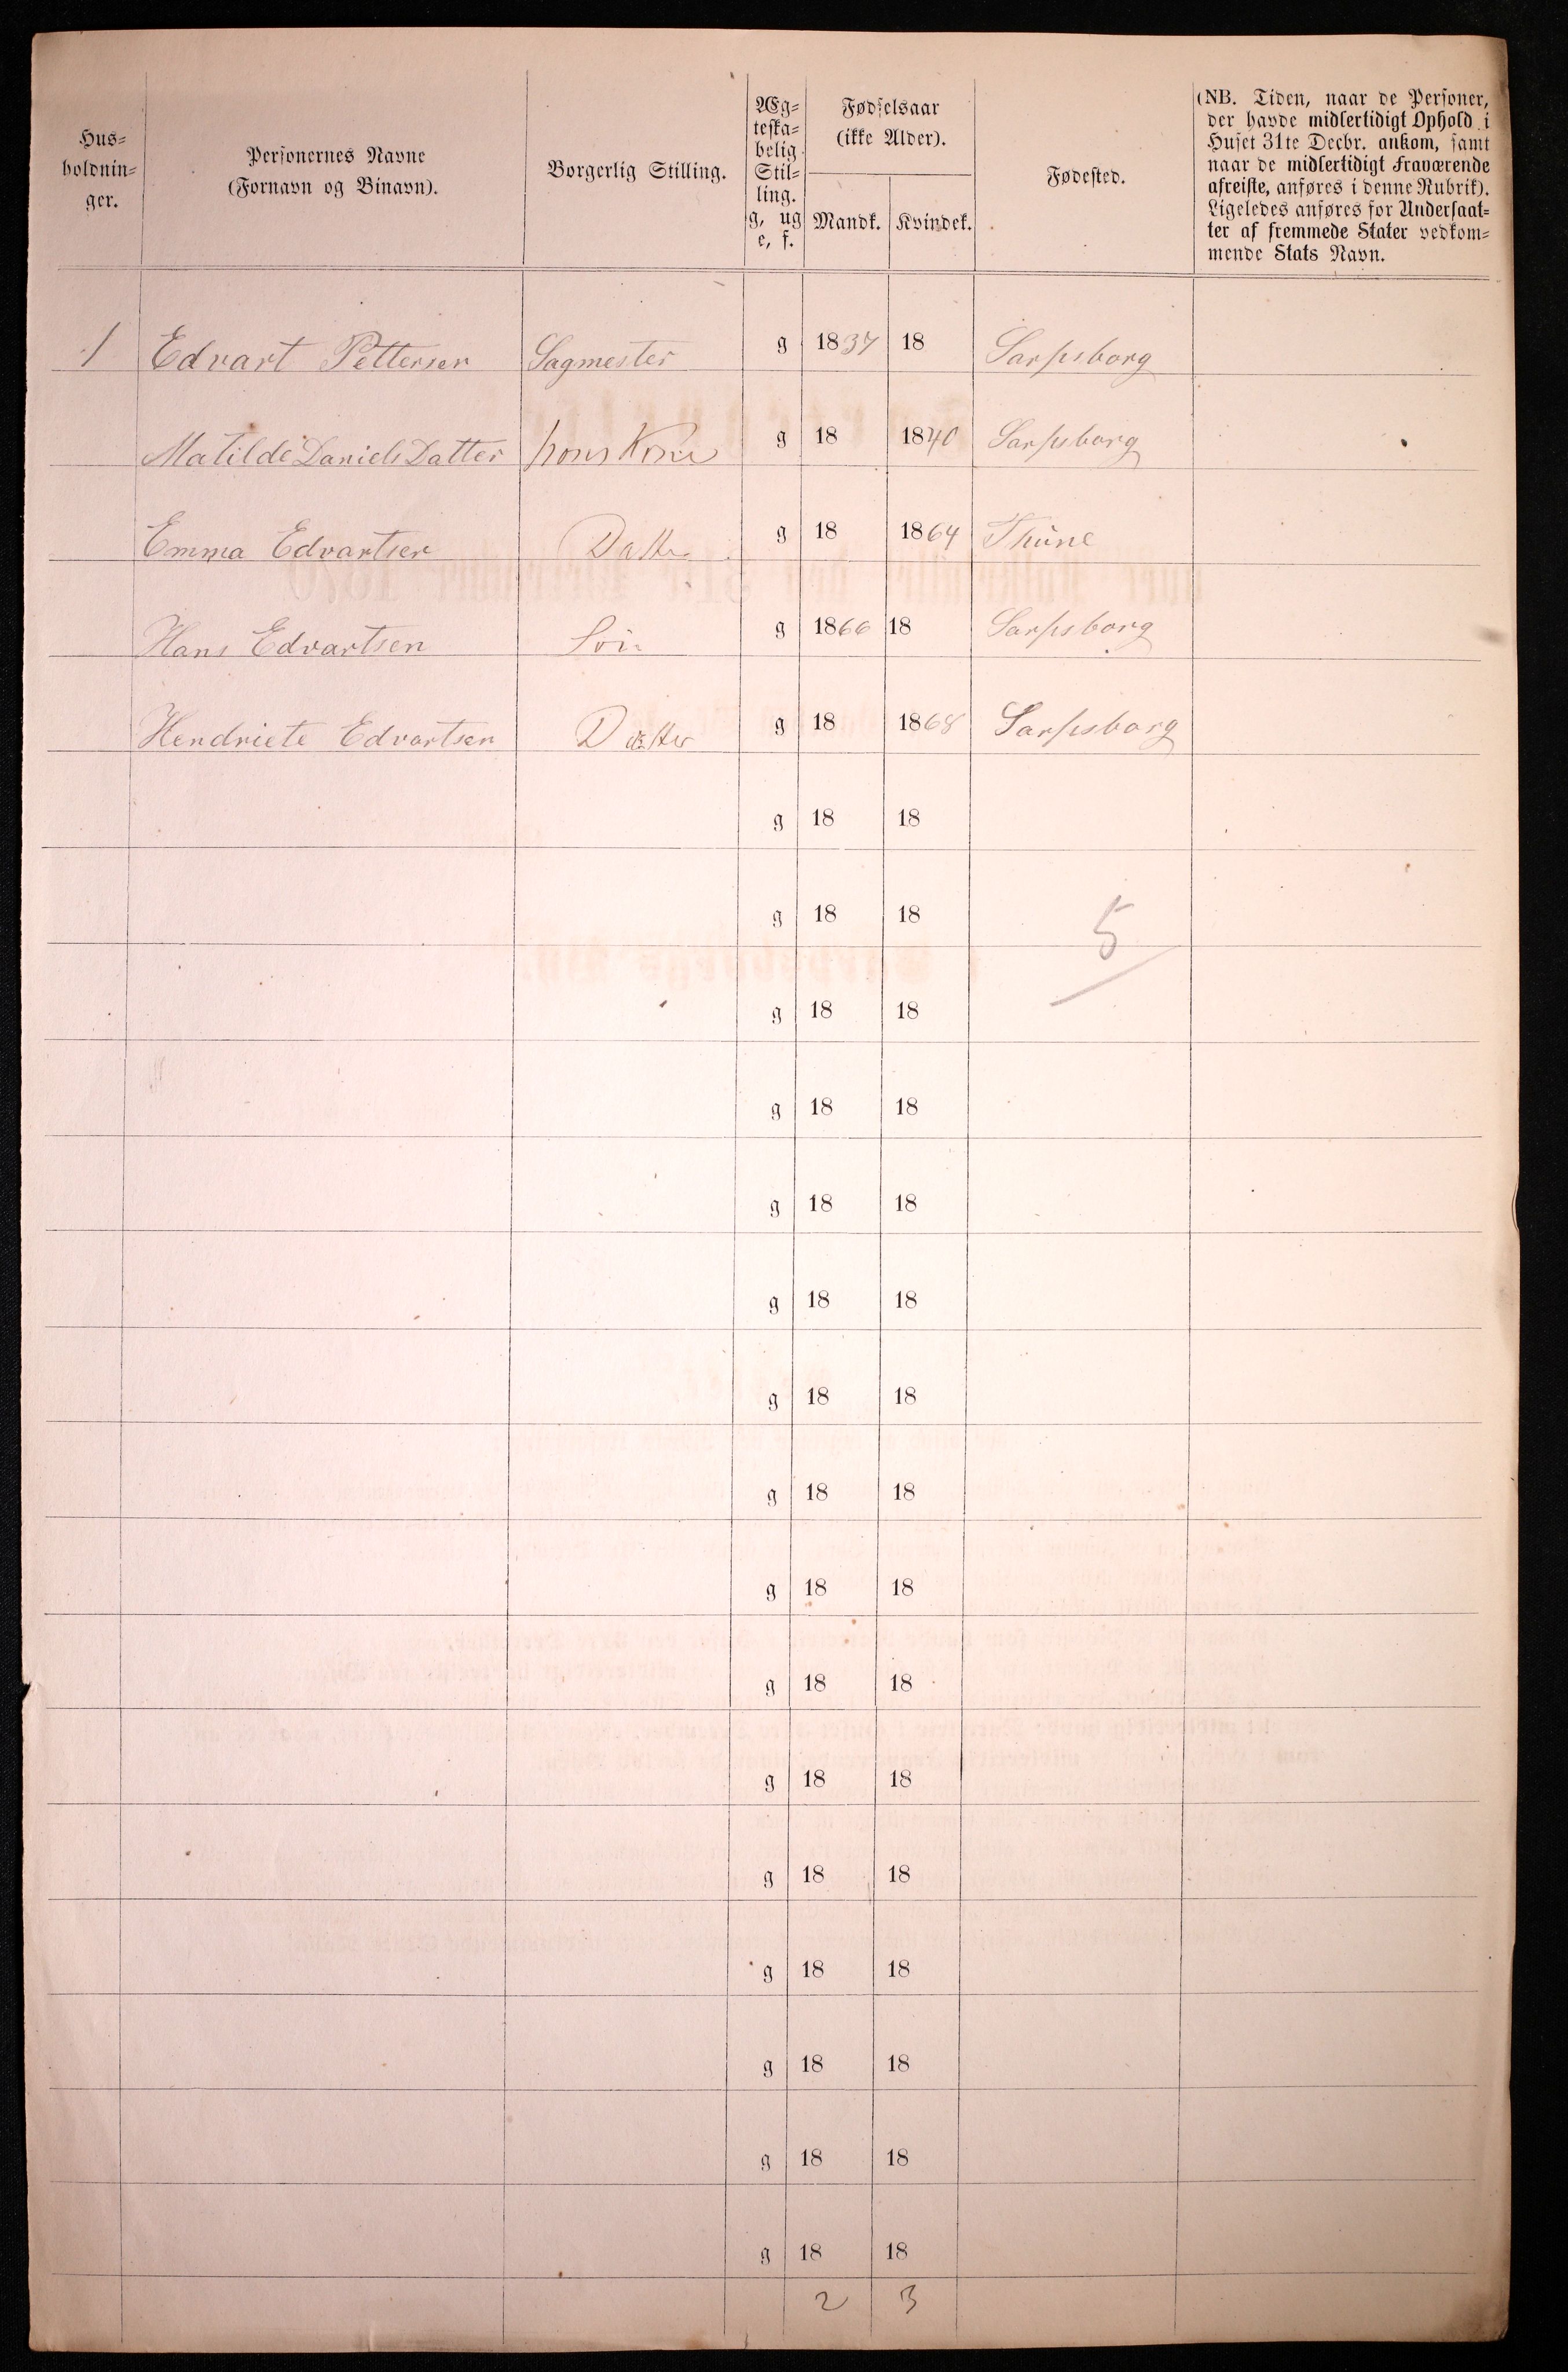 Hus-
holdnin-
ger.
Personernes Navne
(Fornavn og Binavn).
Borgerlig Stilling.
Æg-
teska-
belig
Stil-
ling.
g, ug
e, f.
Fødselsaar
(ikke Alder).
Mandk. Kvindek.
Fødested.
(NB. Tiden, naar de Personer,
der havde midlertidigt Ophold i
Huset 31te Decbr. ankom, samt
naar de midlertidigt Fraværende
afreiste, anføres i denne Rubrik).
Ligeledes anføres for Undersaat-
ter af fremmede Stater vedkom-
mende Stats Navn.
1 Edvart Pettersen Sagmester g 1837 18 Sarpsborg
Matilde Daniels Datter hans Kone g 18 1840 Sarpsborg
Emma Edvartsen Datter g 18 1864 Thune
Hans Edvartsen Søn g 1866 18 Sarpsborg
Hendriete Edvartsen Datter g 18 1868 Sarpsborg
g 18 18
g 18 18 5
g 18 18
g 18 18
g 18 18
g 18 18
g 18 18
g 18 18
g 18 18
g 18 18
g 18 18
g 18 18
g 18 18
g 18 18
g 18 18
g 18 18
2 3